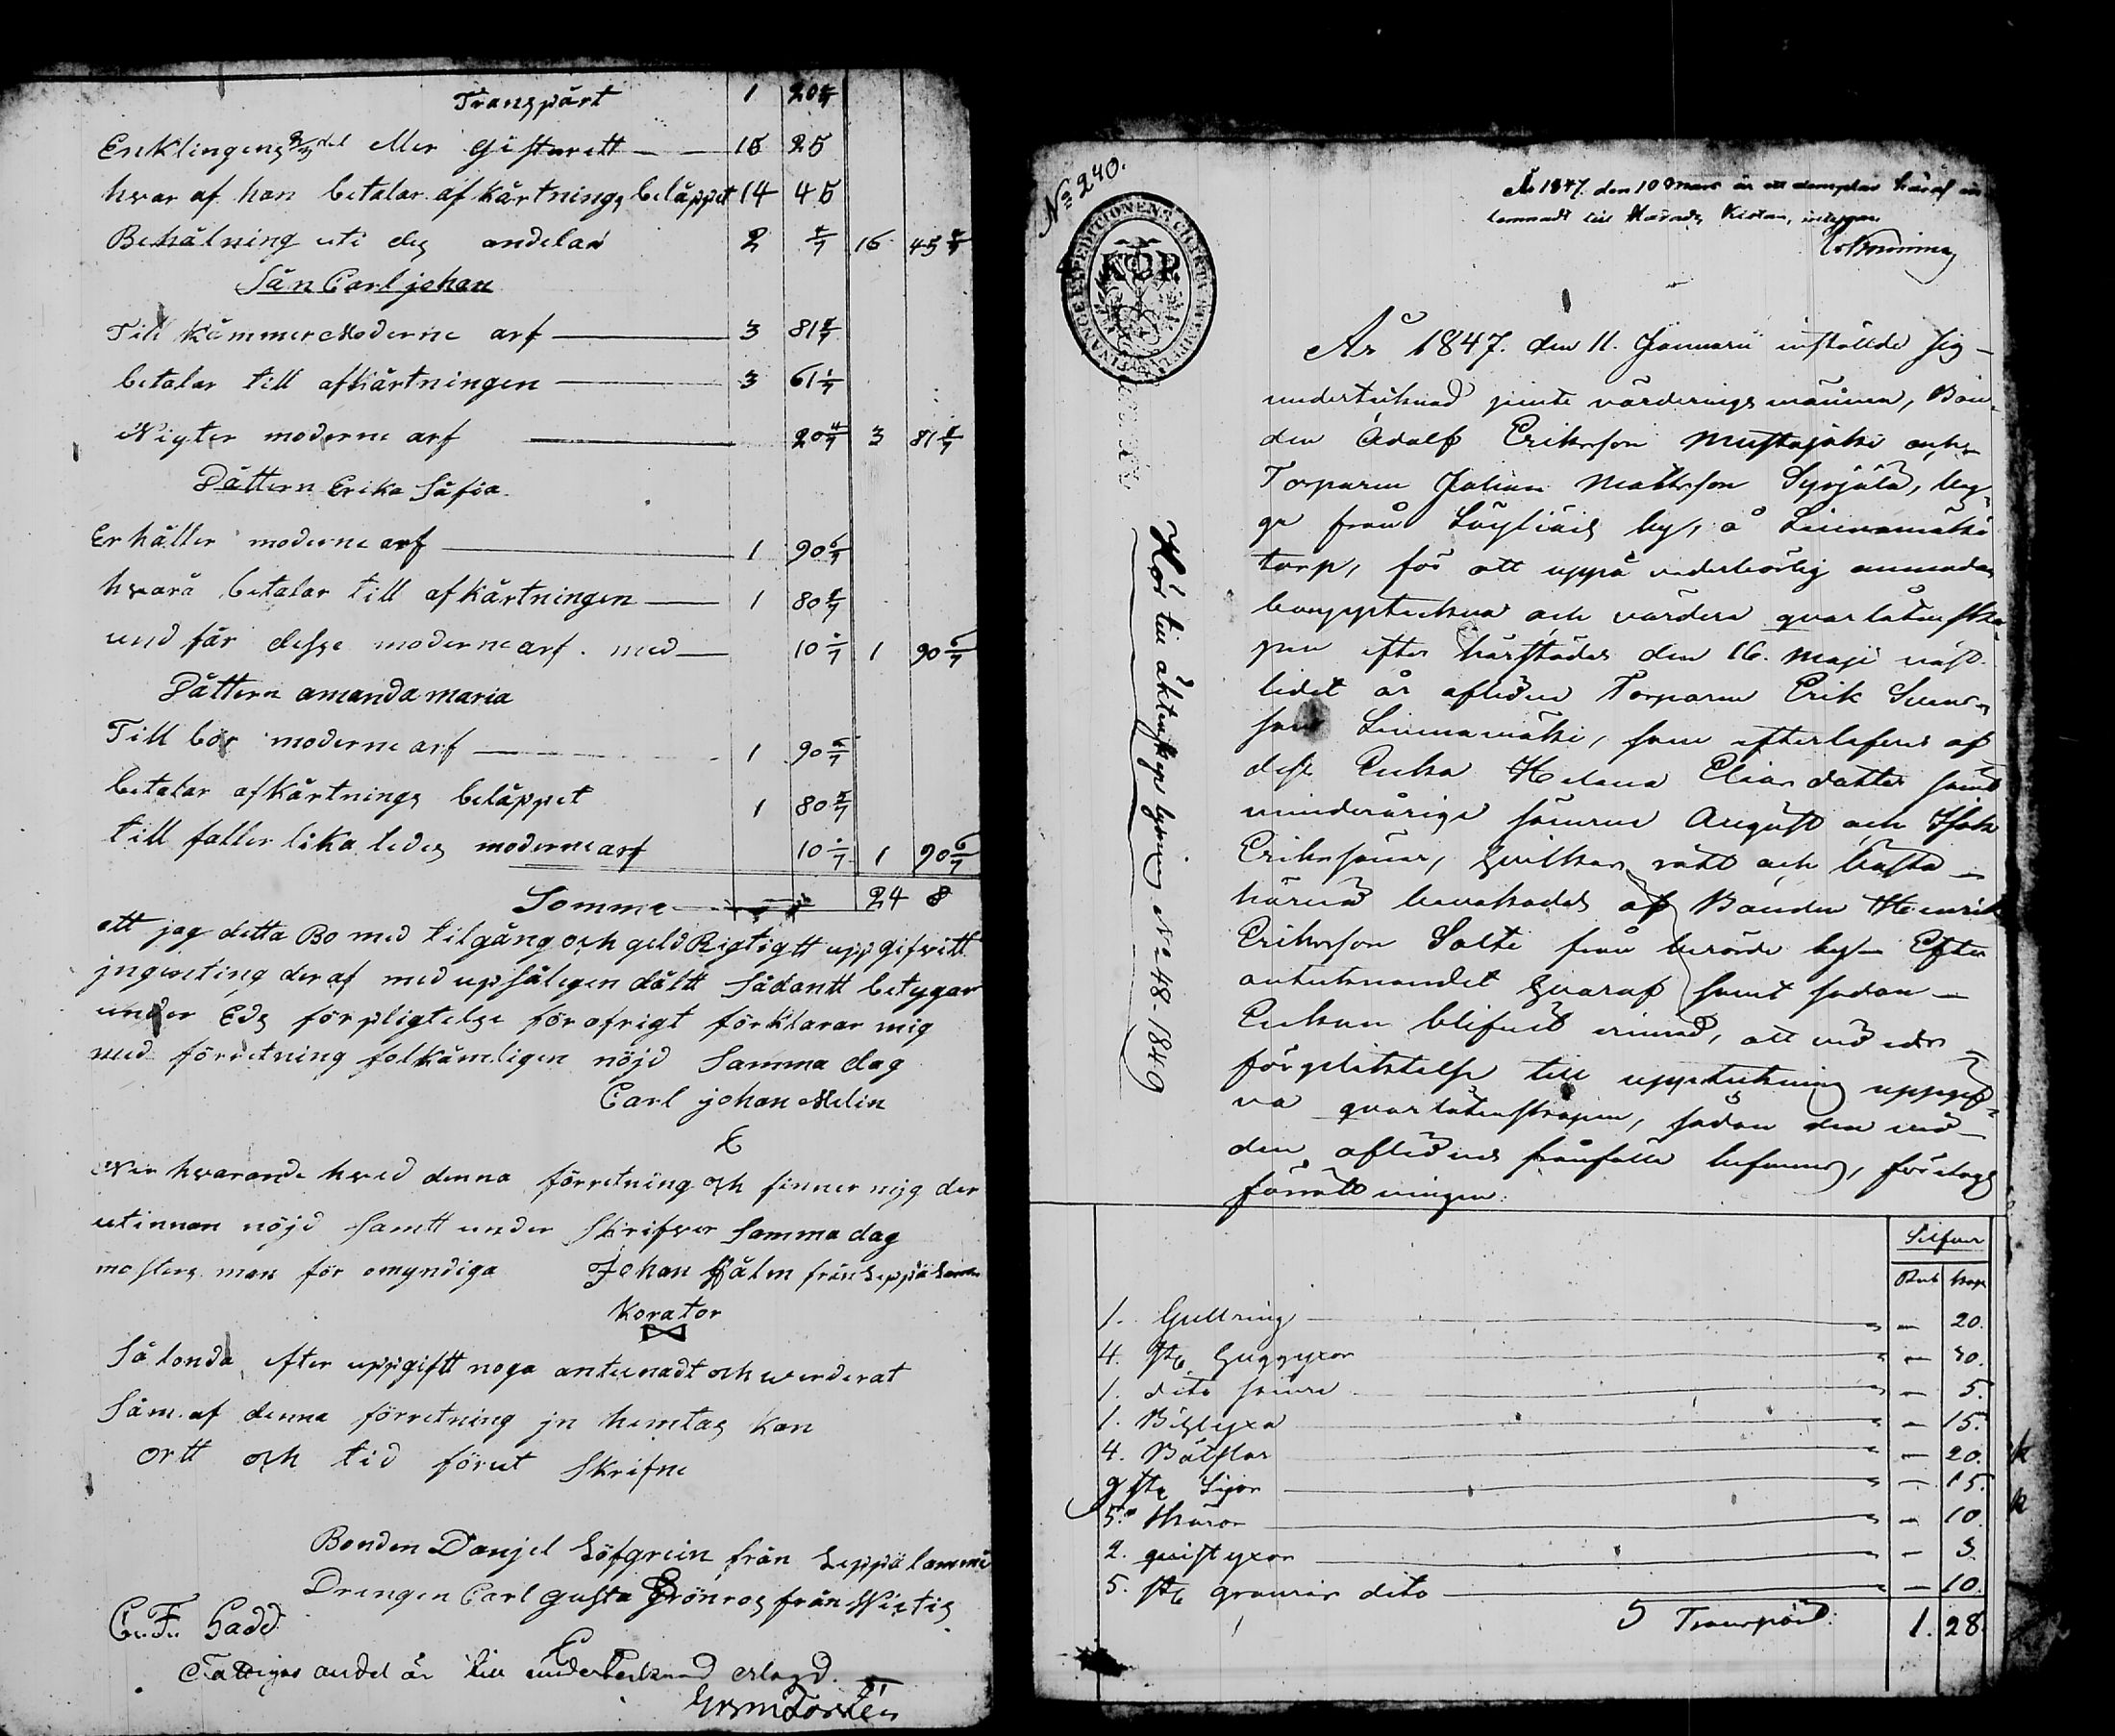 Transpårt 1 20 4/7
Enklingens 2/3 del eller Giftorett — — 16 25
hvar af han betalar afkårtnings belåppet 14 45
Behålning uti des andelar 2 16 45
Sån Carl johan
Till kåmmer Moderne arf — 3 81
betalar till afkårtningen — 3 61
moderne arf — 20 4/7 3 81
Dåttern Erika Såfia
Erhåller moderne arf — 1 90 6/7
hvarå betalar till afkårtningen — 1 80
und får desse moderne arf. med — 10 1 90 6/7
Dåttern amanda maria
Till bör moderne arf — 1 90
betalar afkårtnings belåppet 1 80
till faller lika ledes moderne arf 10 1 90 6/7
Somma 24 8
att jag detta Bo med tilgång och geld Rigtigtt uppgifvitt
der af med Sådantt betygar
under Eds förpligtelse för öfrigt förklarar mig
med förretning folkåmligen nöjd Samma dag
Carl johan Melin
hvarande hved denna förretning och finner mig der
utinnan nöjd Samtt under Skrifver Samma dag
mosters man för omyndiga Johan Hålm från Leppälammi
Korator
Sålonda efter uppgiftt noga antecnadt och werderat
Såm af denna förretning jn hemtas kan
ortt och tid förut Skrifne
Bonden Danjel Löfgreen från Leppälammi
Drengen Carl Gusta Grönros från Wigtis
C. F. Gadd
Fattiges andel är till undertecknad erlagd.
No 240.
År 1847. den 10 Mars är ett exemplar häraf in-
lemnadt till Härads Kistan, intygar
FINANCE EXPEDITIONENS
KOP
Hör till åktenskaps lysning No 48 - 1849
År 1847. den 11. Januarii instälde sig
undertecknad jemte värderingsmännen, Bon-
den Adolf Eriksson Mustajoki och
Torparen Johan Mattsson Syrjälä, bäg-
ge från by, å Linnamäki
torp, för att uppå vederbörlig anmodan
uppteckna och värdera qvarlåtenska-
pen efter härstädes den 16. Maji näst-
lidet år aflidne Torparen Erik
son Linnamäki, som efterlefves af
dess Enka Helena Eliasdotter samt
minderårige sönerne August och Isak
Erikssöner, hvilkas rätt och bästa
härvid bevakades af Bonden Henrik
Eriksson Salti från berörde by. Efter
antecknandet hvaraf samt sedan
Enkan blifvit erinrad, att vid eds
förpliktelse till uppteckning uppgif-
va qvarlåtenskapen, sådan den vid
den aflidnes frånfälle befanns, företogs
förrättningen:
Silfver
Rub Kop
1. Gullring — 20.
4. st. Huggyxor — 30.
1. dito sämre — 5.
1. Bilyxa — 15.
4. Båtslar — 20.
9 st. Liior — 15.
5. Skäror — 10.
2. qvistyxor — 3.
5. st. grövrer dito — 10.
Transport: 1. 28.